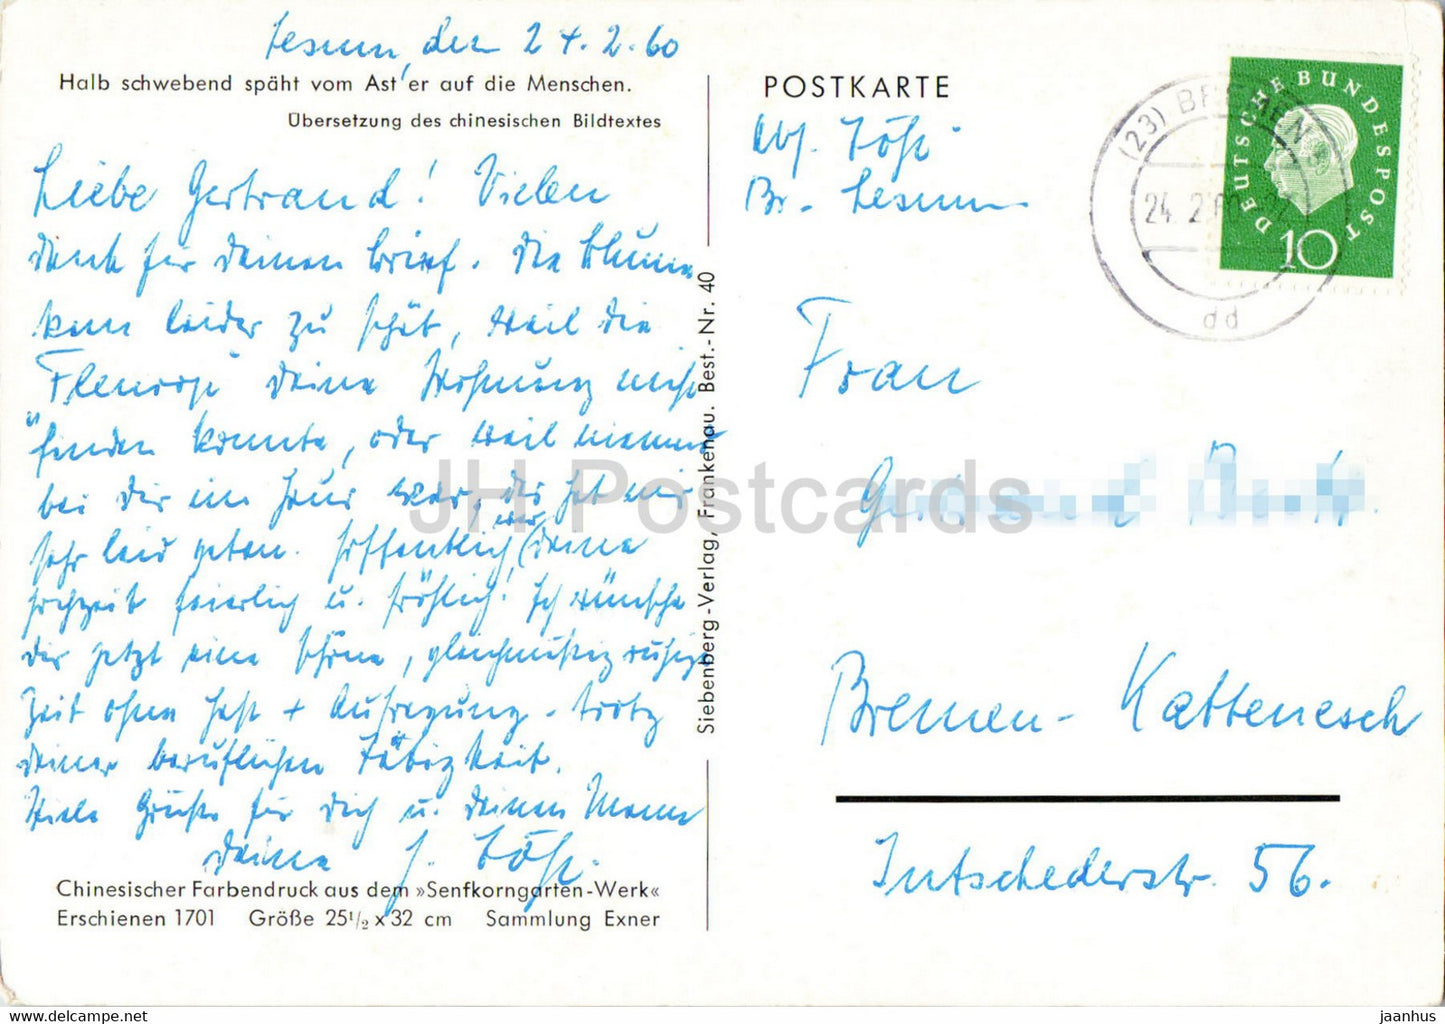 Lesum, den 24.2.60
Halb schwebend späht vom Ast er auf die Menschen.
Übersetzung des chinesischen Bildtextes
Liebe Gertraud! Vielen
Dank für deinen Brief. Die Blumen
kam leider zu spät, weil die
Fleurop deine Wohnung nicht
finden konnte, oder weil niemand
bei dir im Haus war, das hat mir
sehr leid getan. Hoffentlich war deine
Hochzeit feierlich u. fröhlich! Ich wünsche
dir jetzt eine schöne, gleichmäßig ruhige
Zeit ohne Hast + Aufregung - trotz
deiner beruflichen Tätigkeit.
Viele Grüße für dich u. deinen Mann
deine
Chinesischer Farbendruck aus dem »Senfkorngarten-Werk«
Erschienen 1701 Größe 25½ x 32 cm Sammlung Exner
Siebenberg-Verlag, Frankenau. Best.-Nr. 40
POSTKARTE
Abs.
Br. Lesum
DEUTSCHE BUNDESPOST
10
(23) BREMEN
24. 2. 60
dd
Frau
Bremen-Kattenesch
Intschederstr. 56.
JH Postcards
jaanhus